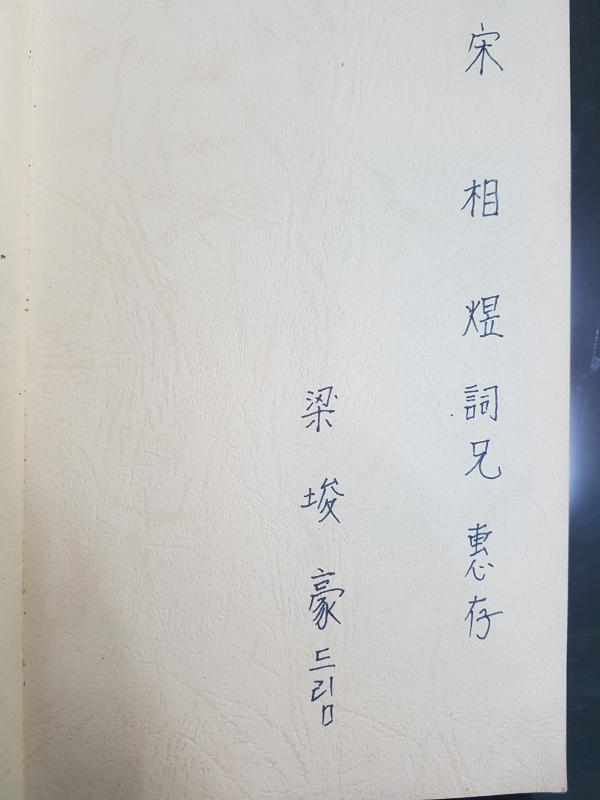 宋相煜詞兄惠存
梁埈豪드림